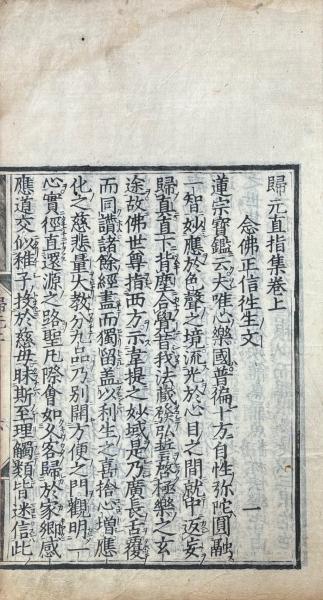 歸元直指集卷上
一
念佛正信徃生文
蓮宗寶鑑云夫唯心樂國普徧十方自性弥陀圓融
一智妙應於色聲之境流光於心目之間就中返妄
歸眞直下背塵合覺昔我法藏務弘誓啓極樂之玄
途故佛世尊指西方示韋提之妙域是乃廣長舌覆
而同讃諸餘經畫而獨留蓋以利生之喜捨心增應
化之慈悲量大教分九品乃別開方便之門觀明一
心實徑直還源之路聖凡際會如父客歸於家郷感
應道交似稚子投於慈毋昧斯至理觸類皆迷信此